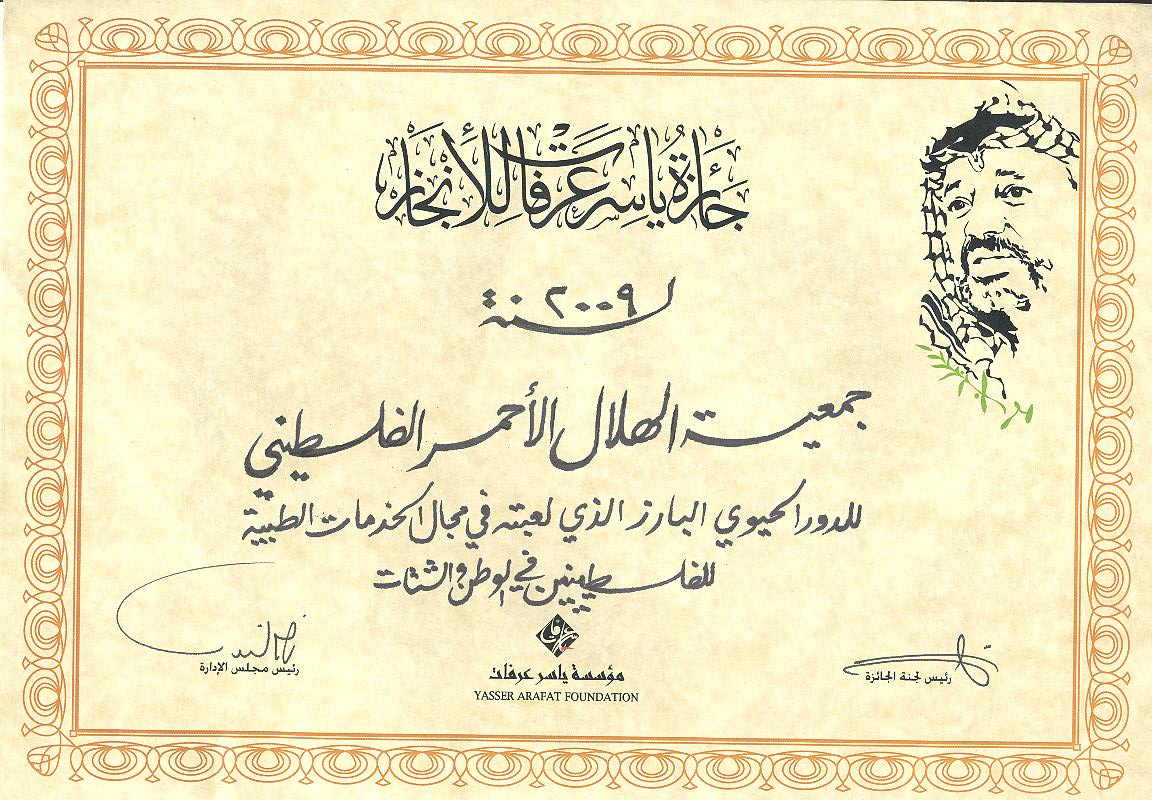 جائزة ياسر عرفات للأنجاز
لسنة ٢٠٠٩
جمعية الهلال الأحمر الفلسطيني
للدور الحيوي البارز الذي لعبته في مجال الخدمات الطبية
للفلسطينيين في الوطن والشتات
رئيس لجنة الجائزة
رئيس مجلس الإدارة
مؤسسة ياسر عرفات
YASSER ARAFAT FOUNDATION